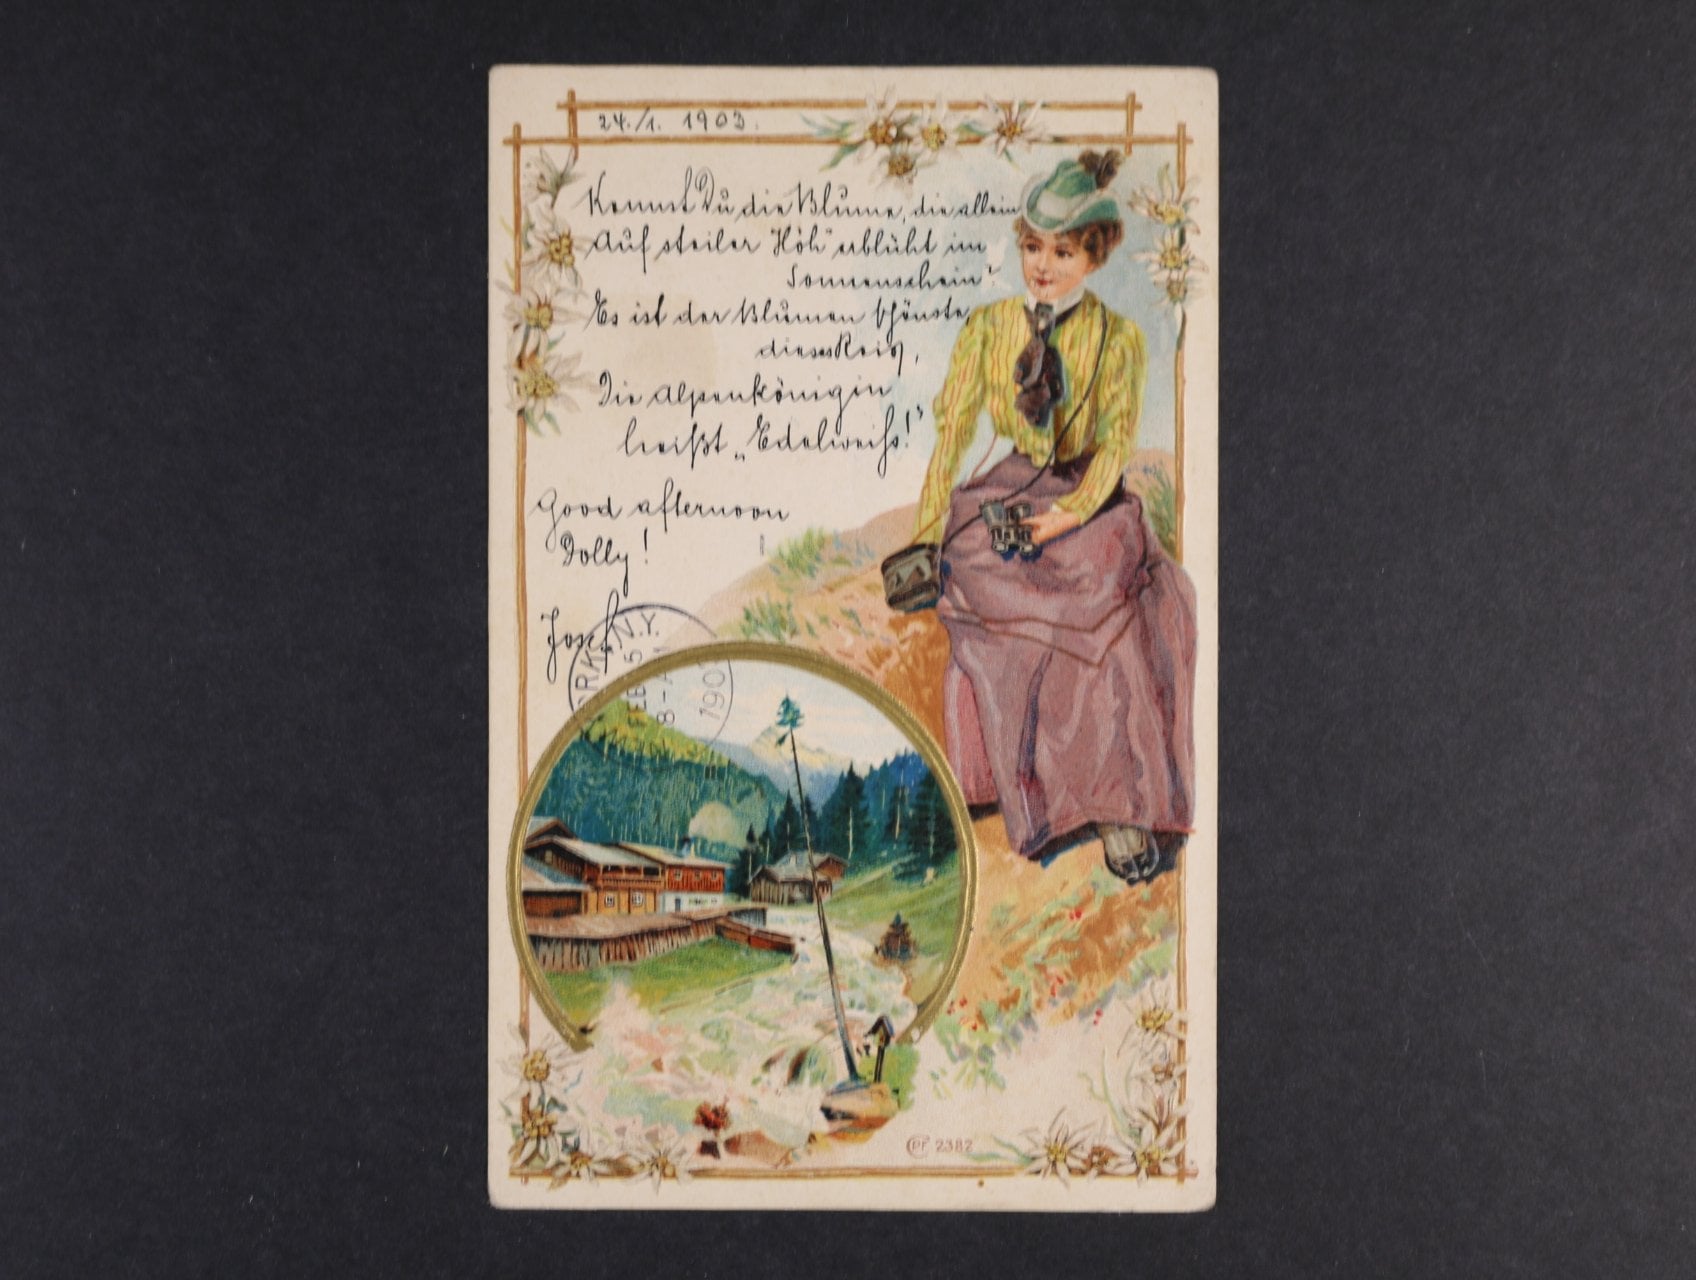 24./1. 1903.
Kennst Du die Blume, die allein
Auf steiler Höh' erblüht im
Sonnenschein?
Es ist der Blumen schönste,
dieses Reig,
Die Alpenkönigin
heißt „Edelweiss!"
Good afternoon
Dolly!
Josef
N.Y.
5
8-A
190
CPF 2382